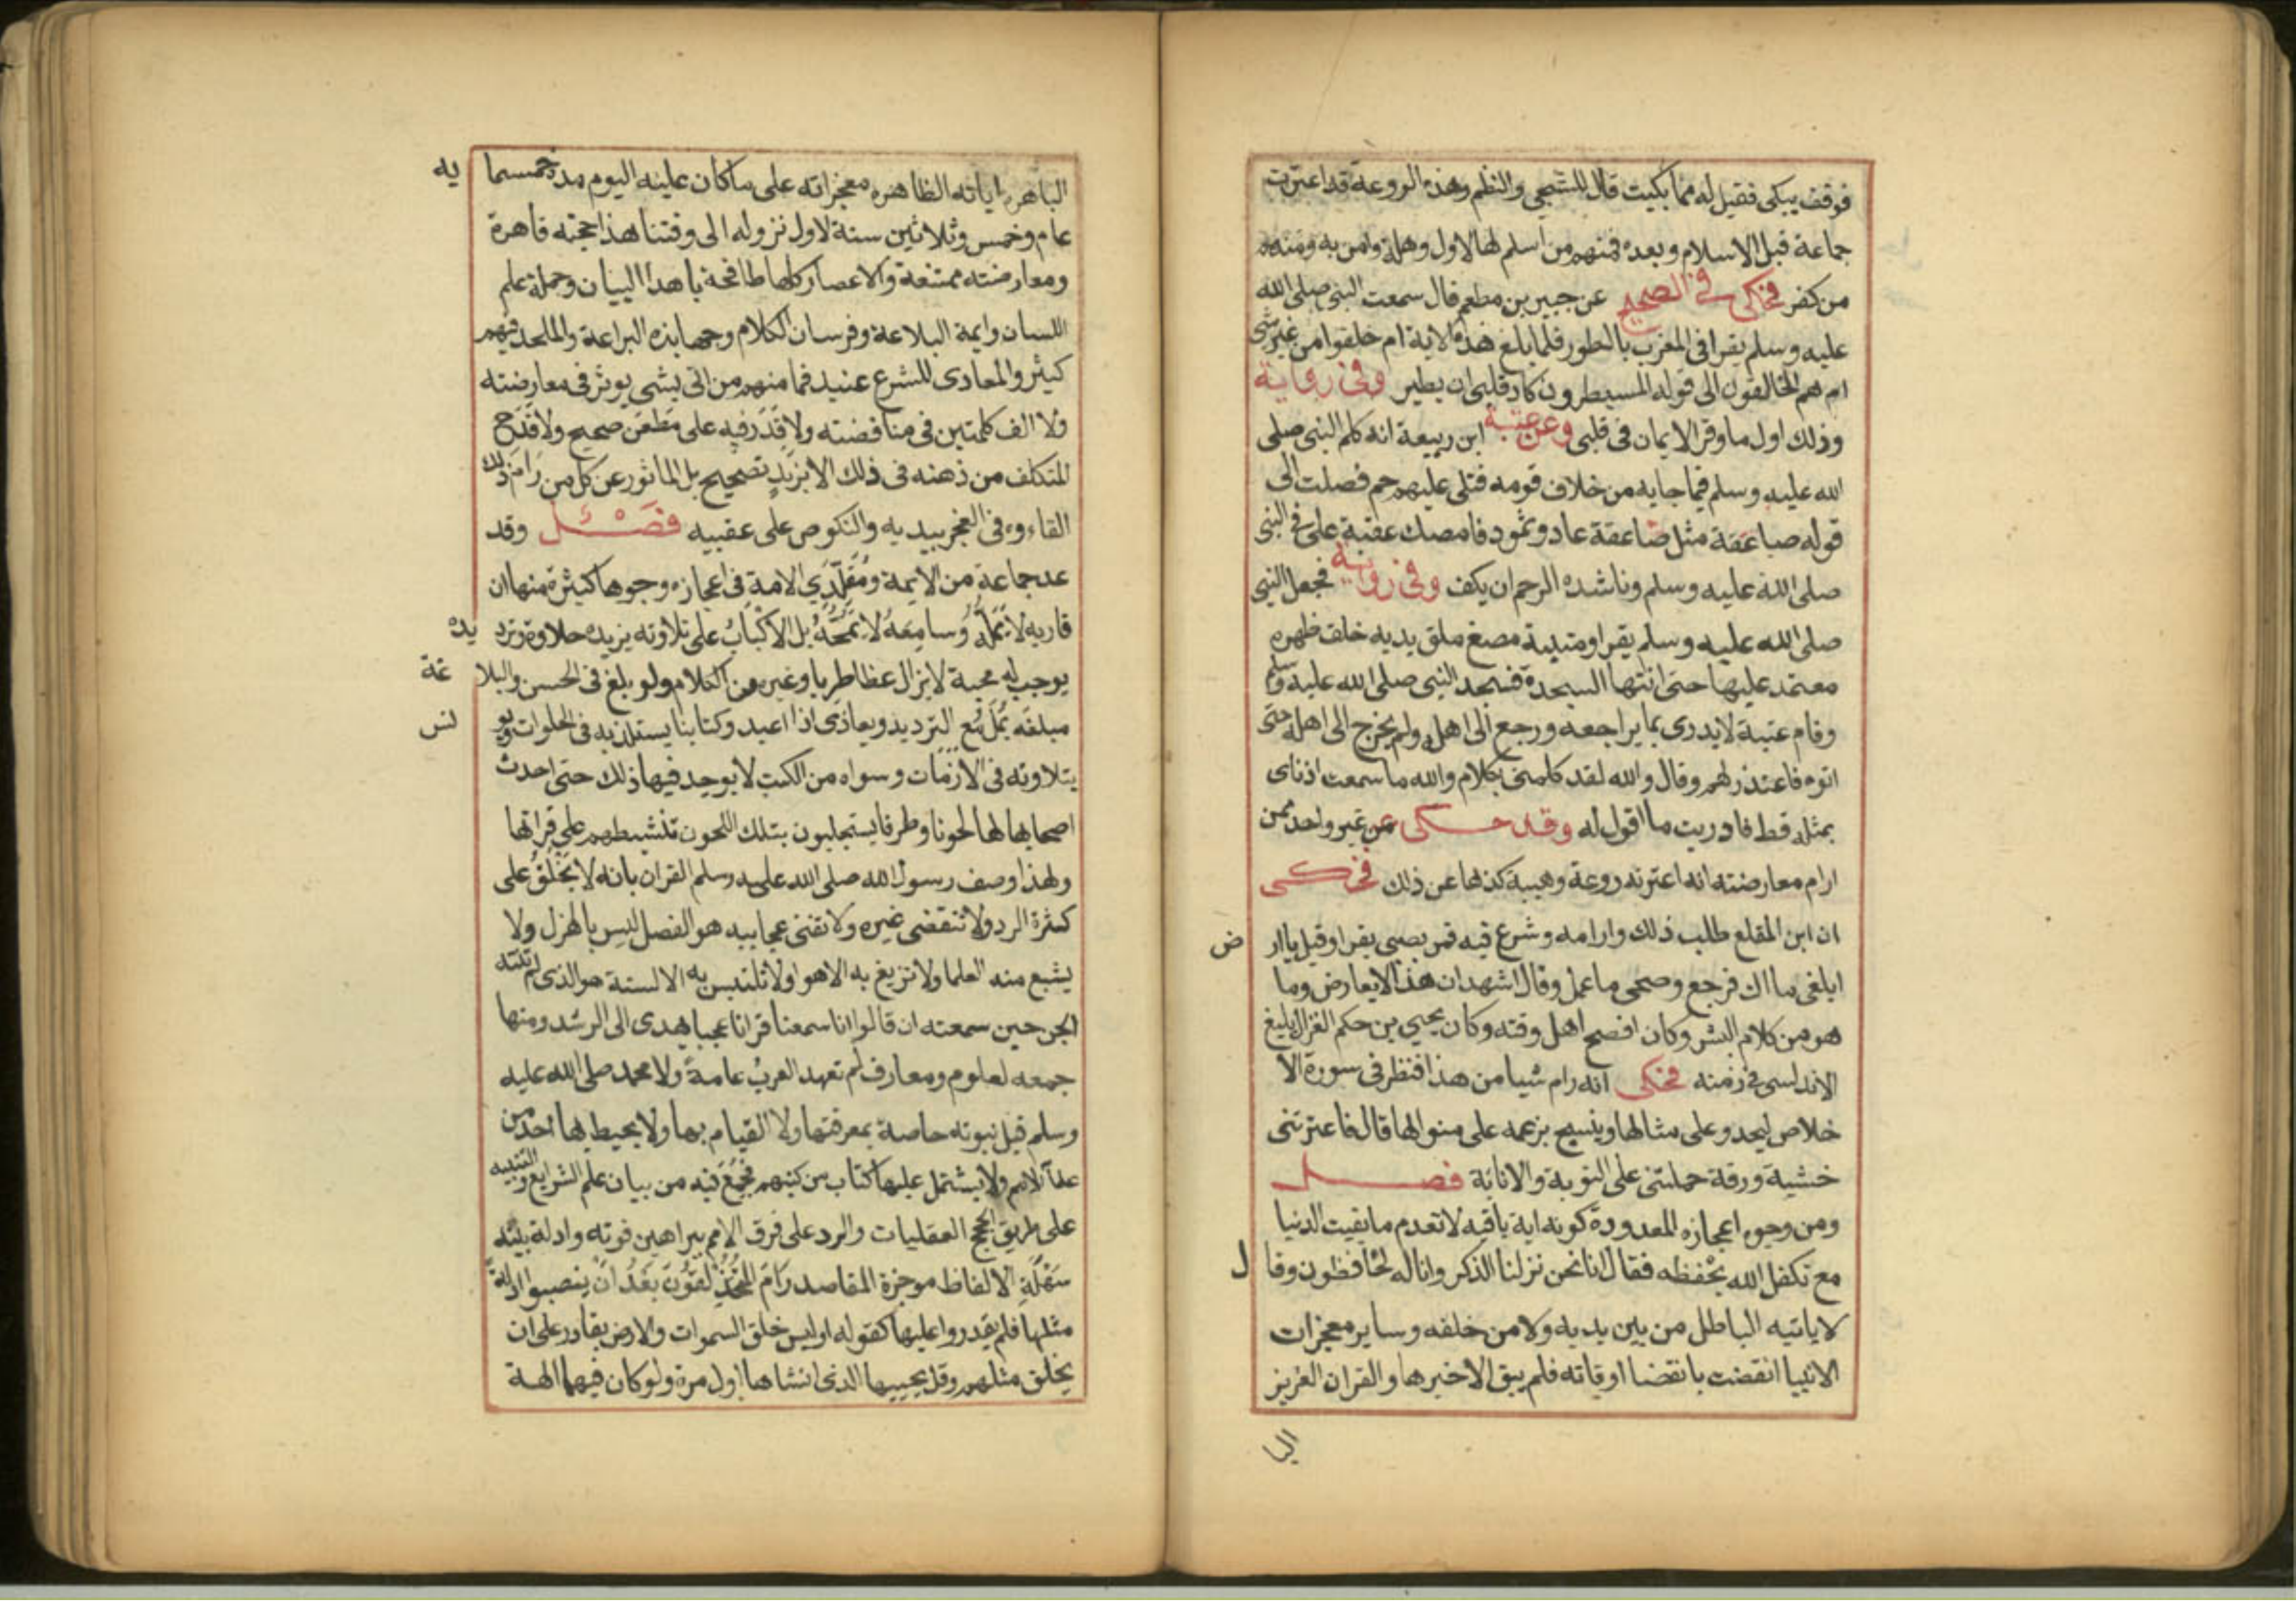 فوقف يبكى فقيل له مما بكيت قال للشجى والنظم وهذه الروعة قد اعترت
جماعة قبل الاسلام وبعده فمنهم من اسلم لها لاول وهلة وامن به ومنهم
من كفر فحكى فى الصحيح عن جبير بن مطعم قال سمعت النبى صلى الله
عليه وسلم يقرا فى المغرب بالطور فلما بلغ هذه الاية ام خلقوا من غير شى
ام هم الخالقون الى قوله المسيطرون كاد قلبى ان يطير وفى رواية
وذلك اول ما وقر الايمان فى قلبى وعن عتبة ابن ربيعة انه كلم النبى صلى
الله عليه وسلم فيما جا به من خلاف قومه فتلى عليهم حم فصلت الى
قوله صاعقة مثل صاعقة عاد وثمود فامسك عتبة على فى النبى
صلى الله عليه وسلم وناشده الرحم ان يكف وفى رواية فجعل النبى
صلى الله عليه وسلم يقرا وعتبة مصغ ملق يديه خلف ظهره
معتمد عليها حتى انتها السجدة فسجد النبى صلى الله عليه وسلم
وقام عتبة لا يدرى بما يراجعه ورجع الى اهله ولم يخرج الى اهله حتى
اتوه فاعتذر لهم وقال والله لقد كلمنى بكلام والله ما سمعت اذناى
بمثله قط فما دريت ما اقول له وقد حكى عن غير واحد ممن
ارام معارضته انه اعترته روعة وهيبة كف لها عن ذلك فحكى
ان ابن المقلع طلب ذلك وارامه وشرع فيه فمر بصبى يقرا وقيل يا ار ض
ابلغى ماك فرجع وصحى ما عمل وقال اشهد ان هذا لا يعارض وما
هو من كلام البشر وكان افصح اهل وقته وكان يحيى بن حكم الغزال بليغ
الاندلسى فى زمنه فحكى انه رام شيا من هذا فنظر فى سورة الا
خلاص ليحدو على مثالها وينسج بزعمه على منوالها قال فاعترتنى
خشية ورقة حملتنى على التوبة والانابة فصل
ومن وجوه اعجازه المعدودة كونه اية باقية لا تعدم ما بقيت الدنيا
مع تكفل الله بحفظه فقال انا نحن نزلنا الذكر وانا له لحافظون وقا ل
لا ياتيه الباطل من بين يديه ولا من خلفه وساير معجزات
الانبيا انقضت بانقضا اوقاته فلم يبق الا خبرها والقران العزيز
البا
الباهره اياته الظاهره معجزاته على ما كان علينه اليوم مدة خمسما يه
عام وخمس وثلاثين سنة لاول نزوله الى وقتنا هذا حجته قاهرة
ومعارضته ممتنعة والاعصار كلها طافحة باهدا البيان وحملة علم
اللسان وايمة البلاعة وفرسان الكلام وجهابذه البراعة والملحد فيهم
كيثر والمعادى للشرع عنيد فما منهم من اتى بشى يوثر فى معارضته
ولا الف كلمتين فى مناقضته ولا قدر فيه على مطعن صحيح ولا قدح
المتكلف من ذهنه فى ذلك الا بزند تصحيح بل الماثور عن كل من رام ذلك
القاءوه فى العجز بيديه والنكوص على عقبيه فصل وقد
عد جماعة من الايمة ومقلدى الامة فى اعجازه وجوها كيثرة منها ان
قاريه لا يمله وسامعه لا يمجه بل الاكباب على تلاوته يزيده حلاوة وترد يده
يوجب له محبة لا يزال غظا طريا وغيره من الكلام ولو بلغ فى الحسن والبلا غة
مبلغه يمل مع الترديد ويعاذى اذا اعيد وكتابنا يستلذ به فى الخلوات ويو نس
بتلاوته فى الازمات وسواه من الكتب لا يوجد فيها ذلك حتى احدث
اصحابها لها لحونا وطرفا يستجلبون بتلك اللحون تنشيطهم على قراتها
ولهذا وصف رسول الله صلى الله عليه وسلم القران بانه لا يخلق على
كثرة الرد ولا تنقضى غيره ولا تفنى عجاييه هو الفصل ليس بالهزل ولا
يشبع منه العلما ولا تزيغ به الاهوا ولا تلتبس به الالسنة هو الذى لم تنته
الجن حين سمعته ان قالوا انا سمعنا قرانا عجبا يهدى الى الرشد ومنها
جمعه لعلوم ومعارف لم تعهد العرب عامة ولا محمد صلى الله عليه
وسلم قبل نبوته خاصة بمعرفتها ولا القيام بها ولا يحيط لها احد من
علما الامم ولا يشتمل عليها كتاب من كتبهم فجمع فيه من بيان علم الشرايع والتنبيه
على طريق الحجج العقليات والرد على فرق الامم ببراهين قوته وادلة بينه
سهلة الالفاظ موجزة المقاصد رام المتحذلقون بعد ان ينصبوا ادلة
مثلها فلم يقدروا عليها كقوله اوليس خلق السموات والارض بقادر على ان
يخلق مثلهم وقل يحييها الذى انشاها اول مرة ولو كان فيهما الهة